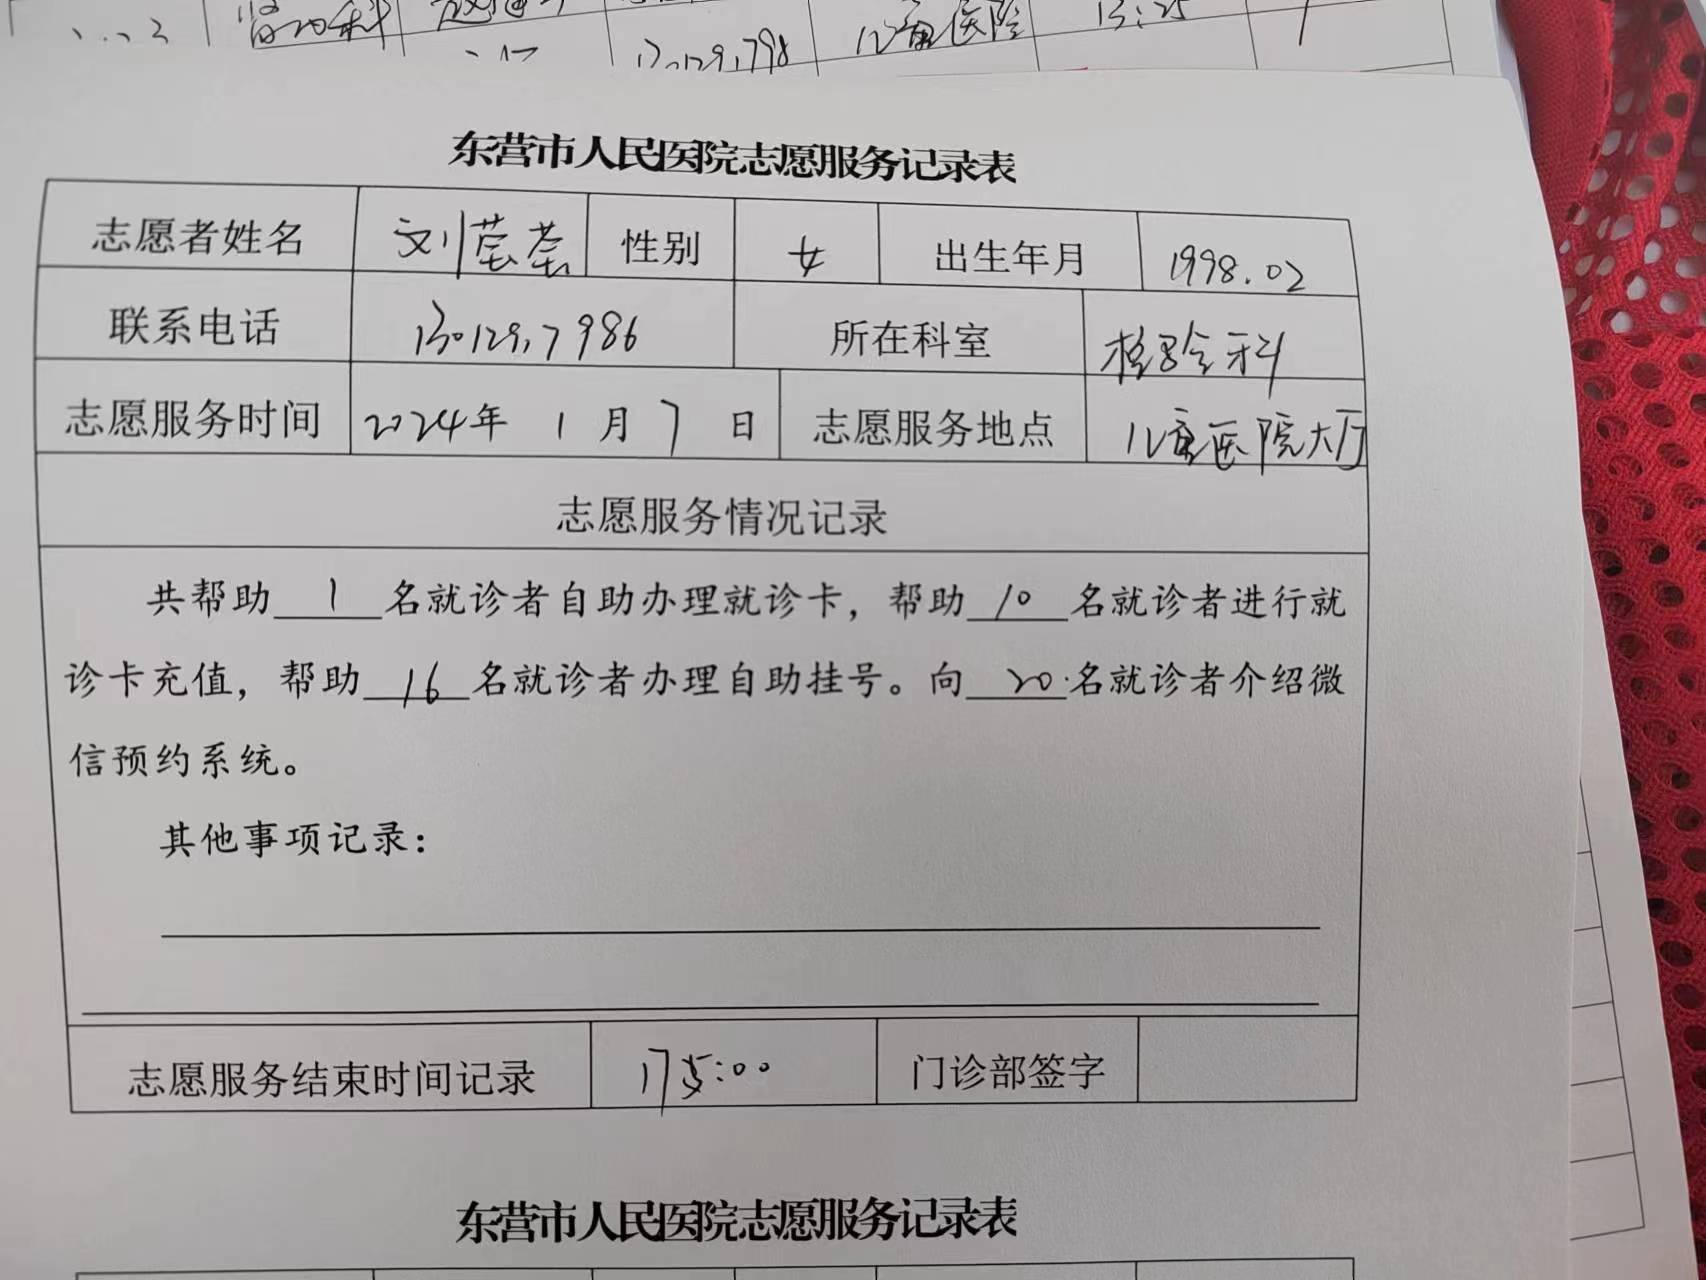 儿童医院 13:25 1
东营市人民医院志愿服务记录表
志愿者姓名 刘荟荟 性别 女 出生年月 1998.02
联系电话 所在科室 检验科
志愿服务时间 2024年 1 月 7 日 志愿服务地点 儿童医院大厅
志愿服务情况记录
共帮助 1 名就诊者自助办理就诊卡，帮助 10 名就诊者进行就
诊卡充值，帮助 16 名就诊者办理自助挂号。向 20 名就诊者介绍微
信预约系统。
其他事项记录：
志愿服务结束时间记录 门诊部签字
东营市人民医院志愿服务记录表